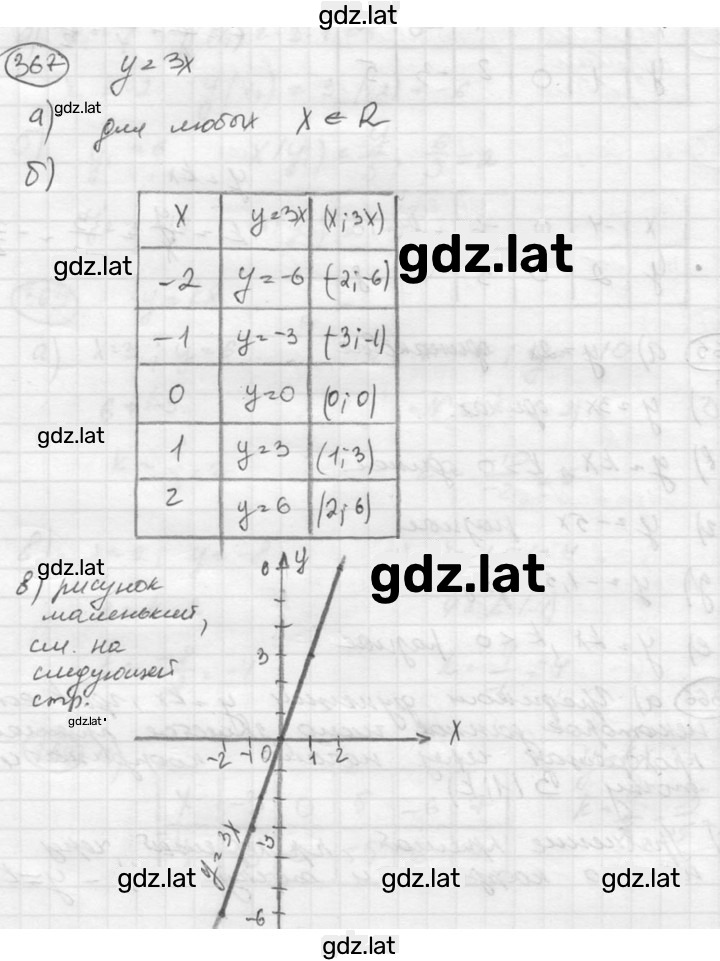 gdz.lat
367 y = 3x
а) gdz.lat для любых x ∈ R
б)
x y=3x (x; 3x)
gdz.lat
gdz.lat
-2 y=-6 (-2;-6)
-1 y=-3 (-3;-1)
0 y=0 (0; 0)
gdz.lat
1 y=3 (1; 3)
2 y=6 (2; 6)
gdz.lat
gdz.lat
в) рисунок
маленький,
см. на
следующей
стр.
gdz.lat
6 y
3
-2 -1 0 1 2 x
-3
y=3x
-6
gdz.lat gdz.lat gdz.lat
gdz.lat